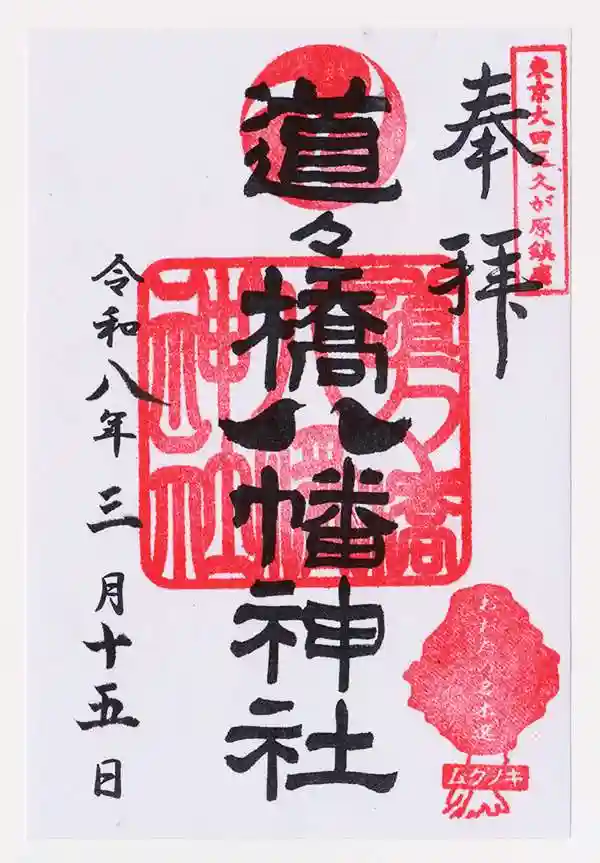 東京大田区久が原鎮座
奉拝
道々橋八幡神社
道々橋
八幡
神社
令和八年三月十五日
おおたの名木選
ムクノキ